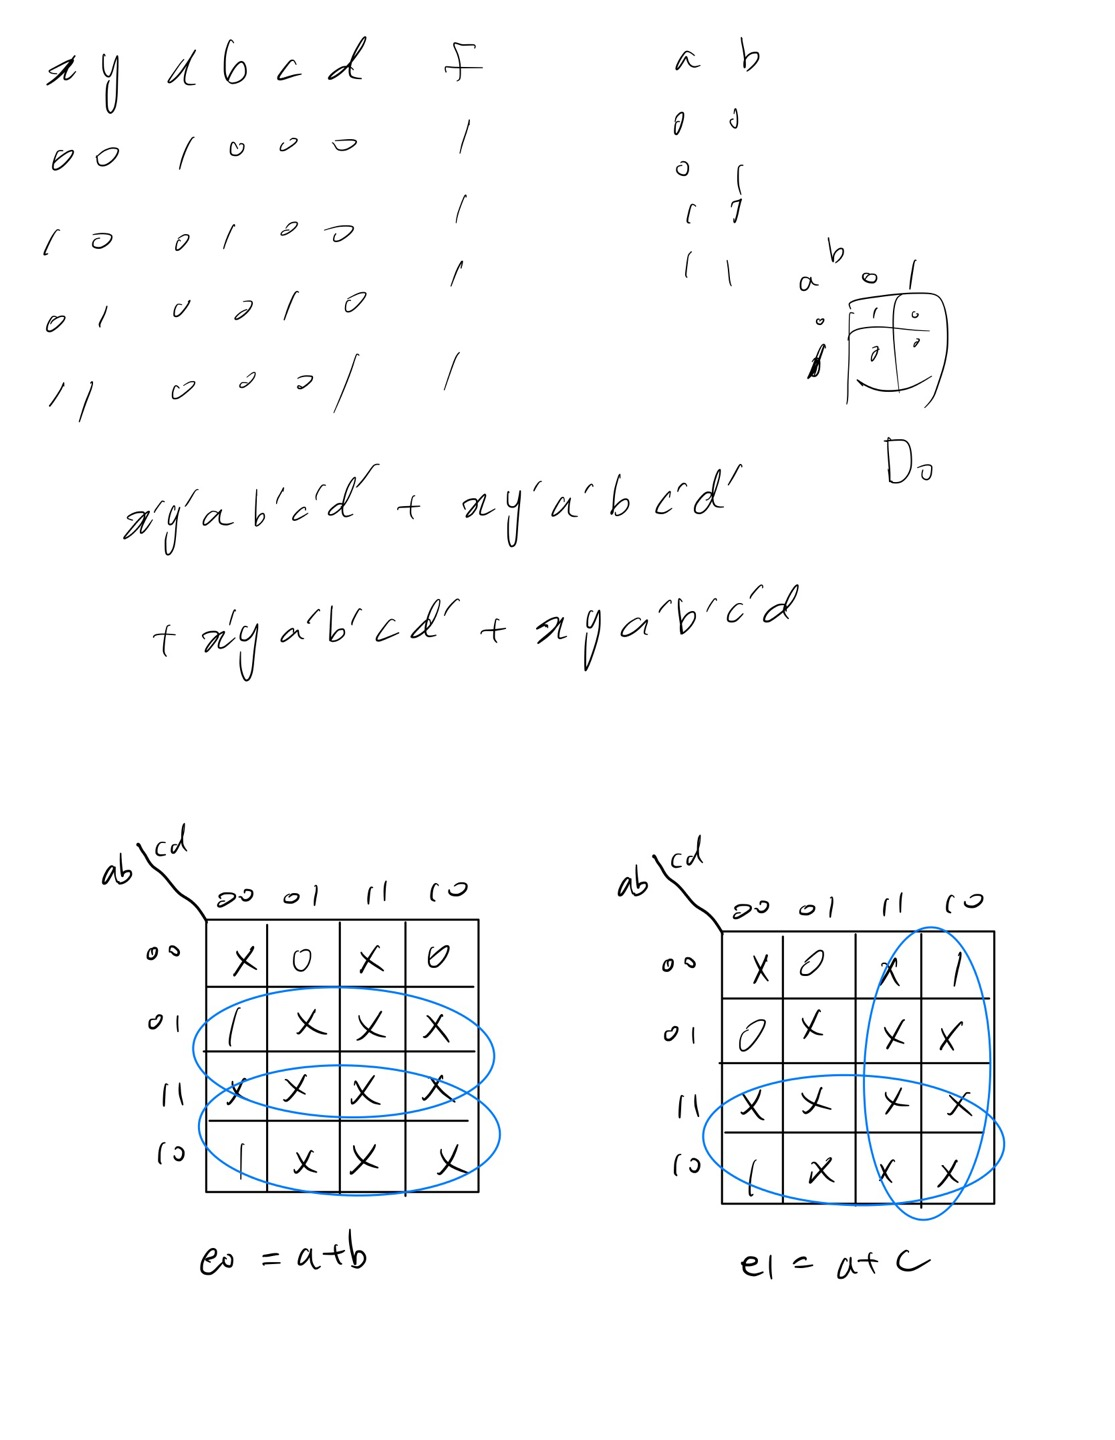 x y a b c d F
0 0 1 0 0 0 1
1 0 0 1 0 0 1
0 1 0 0 1 0 1
1 1 0 0 0 1 1
a b
0 0
0 1
1 1
1 1
b
a 0 1
0 1 0
0 0
D0
x'y'ab'c'd' + xy'a'bc'd'
+ x'ya'b'cd' + xya'b'c'd
cd
ab
00 01 11 10
00 X 0 X 0
01 1 X X X
11 X X X X
10 1 X X X
e0 = a+b
cd
ab
00 01 11 10
00 X 0 X 1
01 0 X X X
11 X X X X
10 1 X X X
e1 = a+c